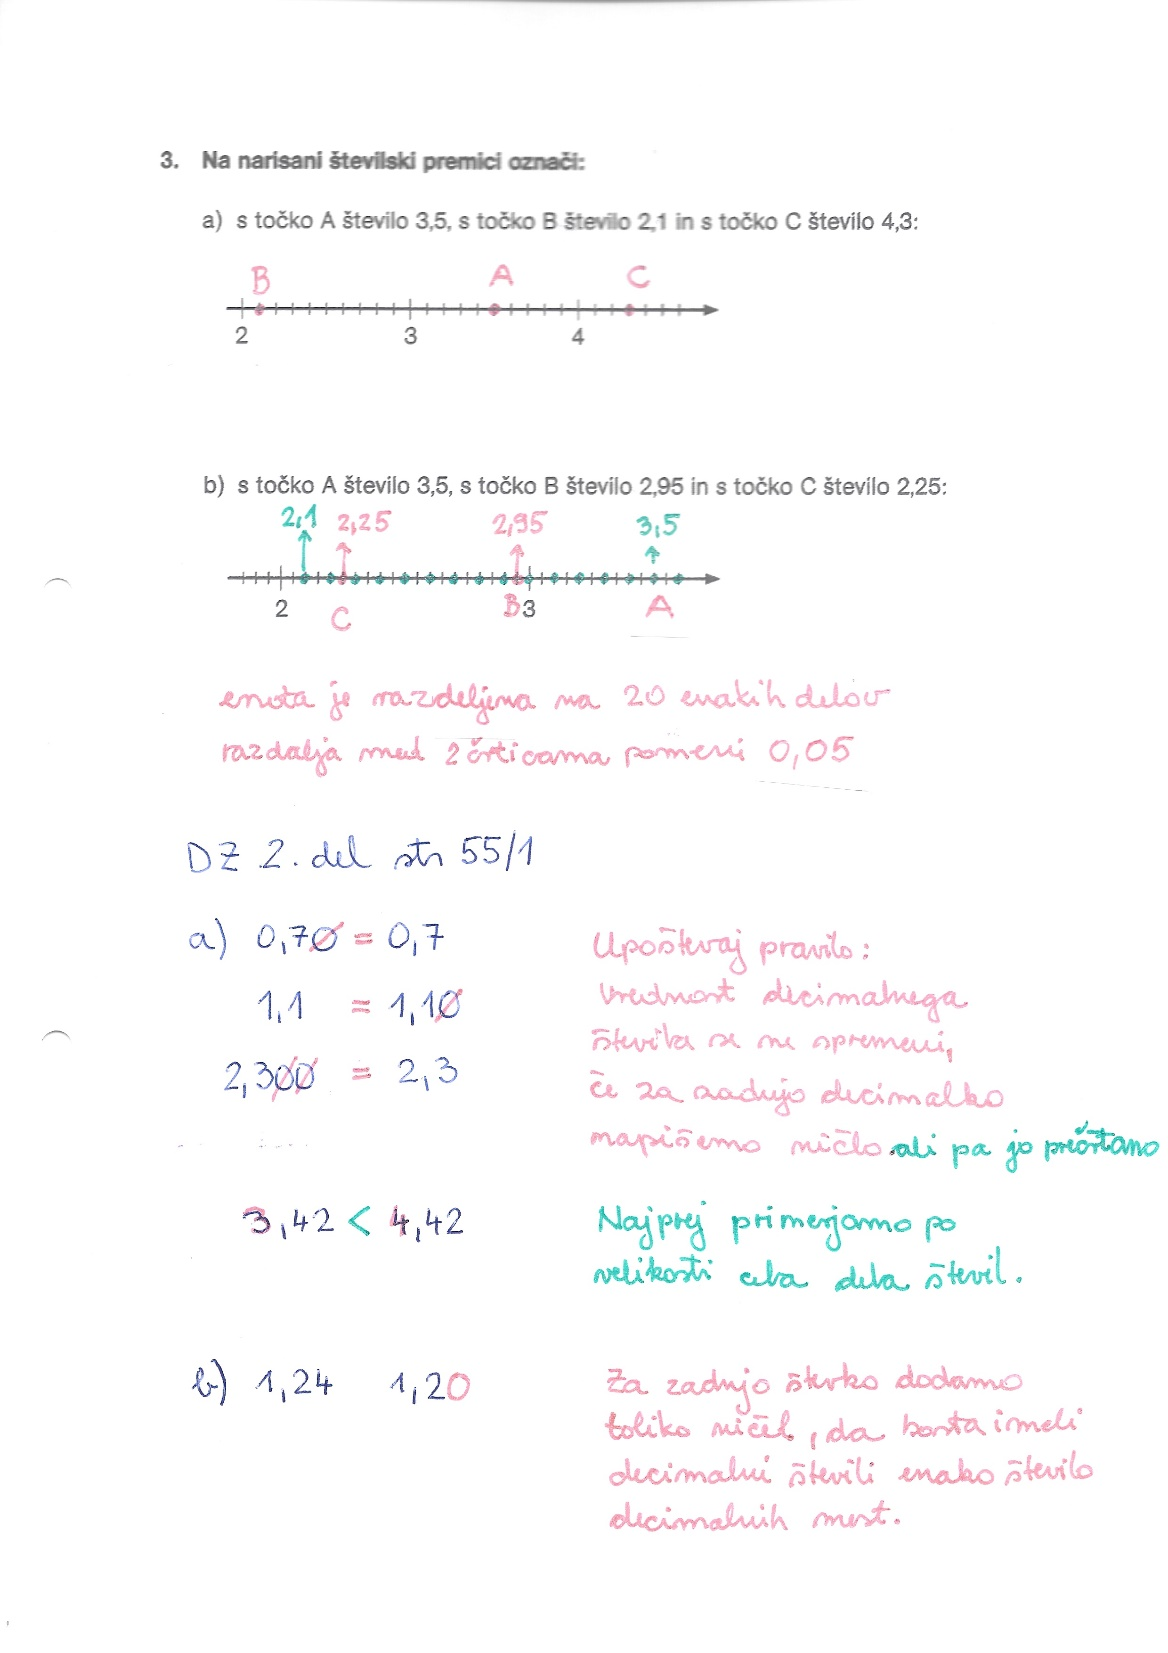 3. Na narisani številski premici označi:
a) s točko A število 3,5, s točko B število 2,1 in s točko C število 4,3:
B A C
2 3 4
b) s točko A število 3,5, s točko B število 2,95 in s točko C število 2,25:
2,1 2,25 2,95 3,5
2 C B 3 A
enota je razdeljena na 20 enakih delov
razdalja med 2 črticama pomeni 0,05
DZ 2. del str 55/1
a) 0,70 = 0,7
1,1 = 1,10
2,300 = 2,3
Upoštevaj pravilo:
Vrednost decimalnega
števila se ne spremeni,
če za zadnjo decimalko
napišemo ničlo ali pa jo prečrtamo
3,42 < 4,42
Najprej primerjamo po
velikosti cela dela števil.
b) 1,24 1,20
Za zadnjo števko dodamo
toliko ničel, da bosta imeli
decimalni števili enako število
decimalnih mest.